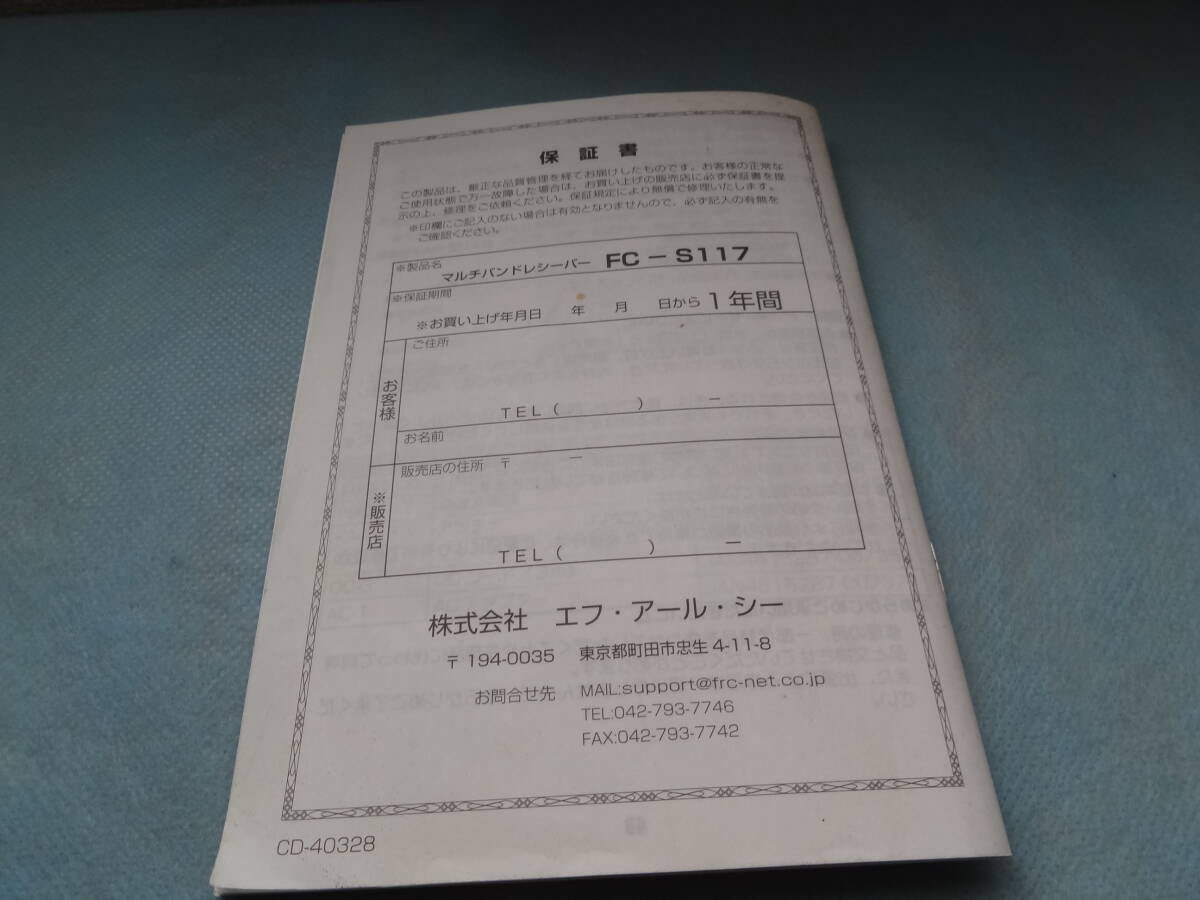 保証書
この製品は、厳正な品質管理を経てお届けしたものです。お客様の正常な
ご使用状態で万一故障した場合は、お買い上げの販売店に必ず保証書を提
示の上、修理をご依頼ください。保証規定により無償で修理いたします。
※印欄にご記入のない場合は有効となりませんので、必ず記入の有無を
ご確認ください。
※製品名
マルチバンドレシーバー FC－S117
※保証期間
※お買い上げ年月日 年 月 日から1年間
お客様
ご住所
TEL（ ） －
お名前
※販売店
販売店の住所 〒 －
TEL（ ） －
株式会社 エフ・アール・シー
〒194-0035 東京都町田市忠生4-11-8
お問合せ先 MAIL:support@frc-net.co.jp
TEL:042-793-7746
FAX:042-793-7742
CD-40328